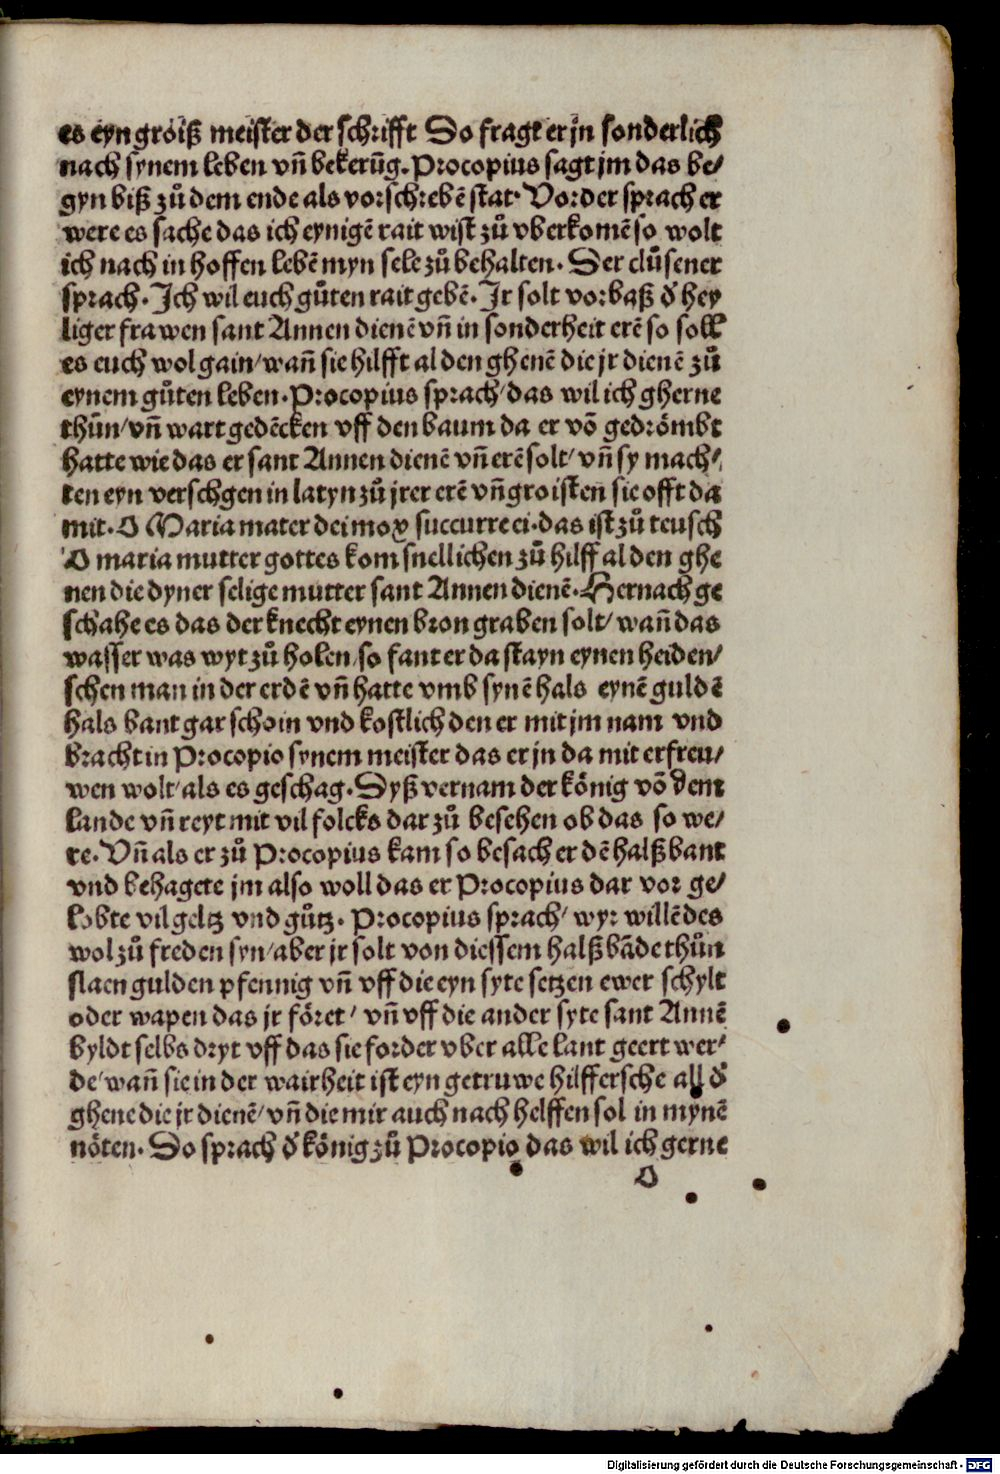 es eyn groiß meister der schrifft So fragt er jn sonderlich
nach synem leben vñ bekerūg. Procopius sagt jm das be/
gyn biß zů dem ende als vorschrebē stat. Vorder sprach er
were es sache das ich eynigē rait wist zů vberkomē so wolt
ich nach in hoffen lebē myn sele zů behalten. Der clůsener
sprach. Ich wil euch gůten rait gebē. Ir solt vorbaß d̕ hey
liger frawen sant Annen dienē vñ in sonderheit erē so soll
es euch wol gain/ wañ sie hilfft al den ghenē die jr dienē zů
eynem gůten leben. Procopius sprach/ das wil ich gherne
thůn/ vñ wart gedēcken vff den baum da er vō gedrömbt
hatte wie das er sant Annen dienē vñ erē solt/ vñ sy mach/
ten eyn verschgen in latyn zů jrer erē vñ groisten sie offt da
mit. O Maria mater dei mox succurre ei. das ist zů teusch
O maria mutter gottes kom snellichen zů hilff al den ghe
nen die dyner selige mutter sant Annen dienē. Hernach ge
schahe es das der knecht eynen bron graben solt/ wañ das
wasser was wyt zů holen/ so fant er da stayn eynen heiden/
schen man in der erdē vñ hatte vmb synē hals eynē guldē
hals bant gar schoin vnd kostlich den er mit jm nam vnd
bracht in Procopio synem meister das er jn da mit erfreu/
wen wolt/ als es geschag. Dyß vernam der könig vō dem
lande vñ reyt mit vil folcks dar zů besehen ob das so we/
re. Vñ als er zů Procopius kam so besach er dē halßbant
vnd behagete jm also woll das er Procopius dar vor ge/
lobte vil geltz vnd gůtz. Procopius sprach/ wyr willē des
wol zů freden syn/ aber jr solt von diessem halßbāde thůn
slaen gulden pfennig vñ vff die eyn syte setzen ewer schylt
oder wapen das jr föret/ vñ vff die ander syte sant Annē
byldt selbs dryt vff das sie forder vber alle lant geert wer/
de/ wañ sie in der wairheit ist eyn getruwe hilffersche all d̕
ghene die jr dienē/ vñ die mir auch nach helffen sol in mynē
nöten. Do sprach d̕ könig zů Procopio das wil ich gerne
O
Digitalisierung gefördert durch die Deutsche Forschungsgemeinschaft - DFG